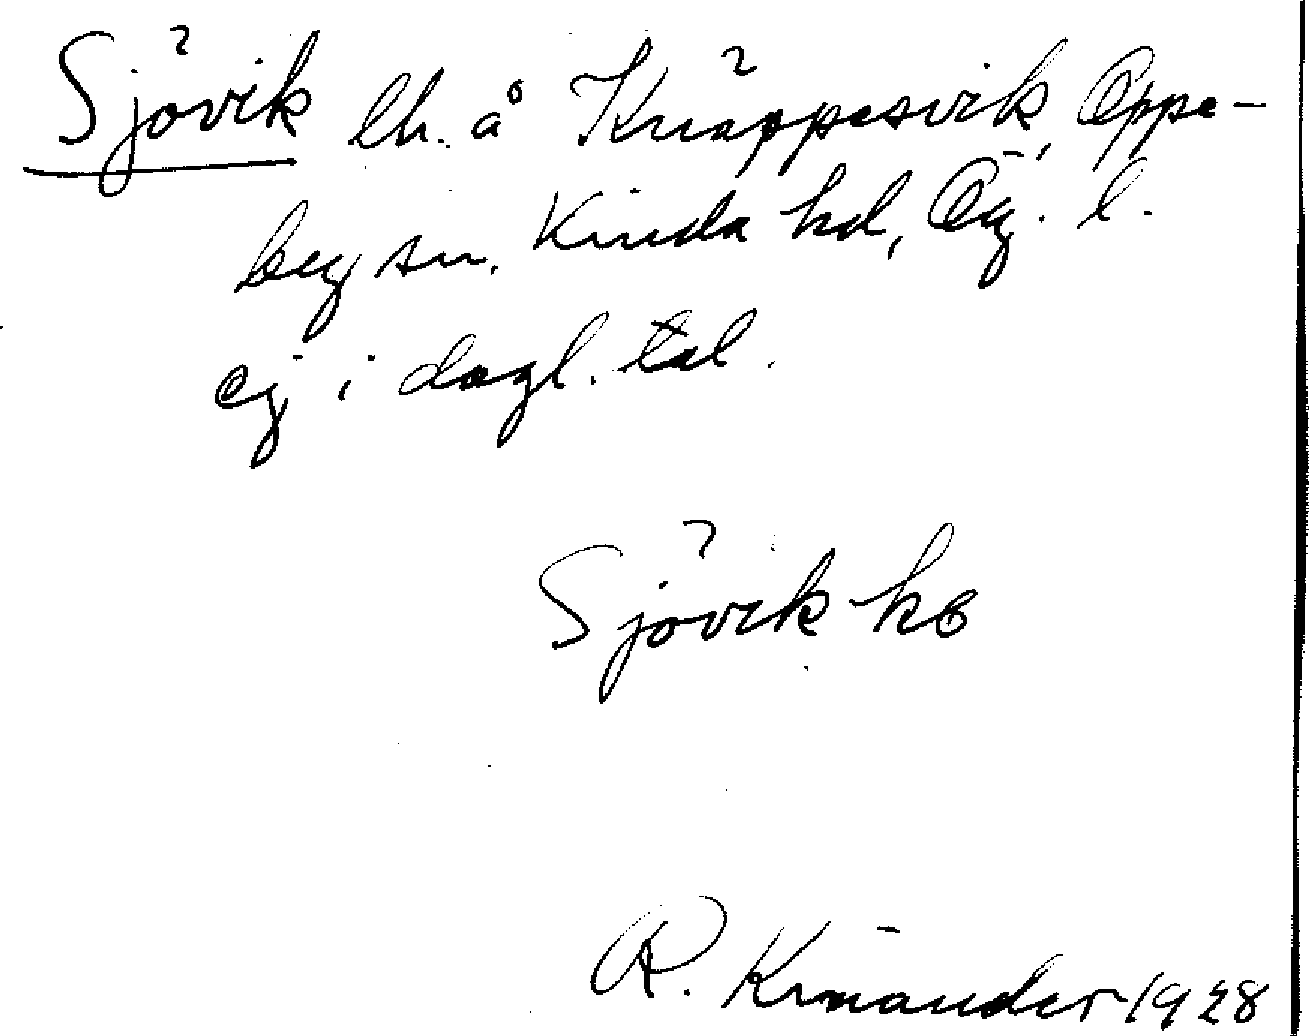 Sjövik lh. å Knäppesvik, Oppe-
by sn. Kinda hd, Ög. l.
ej i dagl. tal.
Sjövik kb
R. Kinander 1928